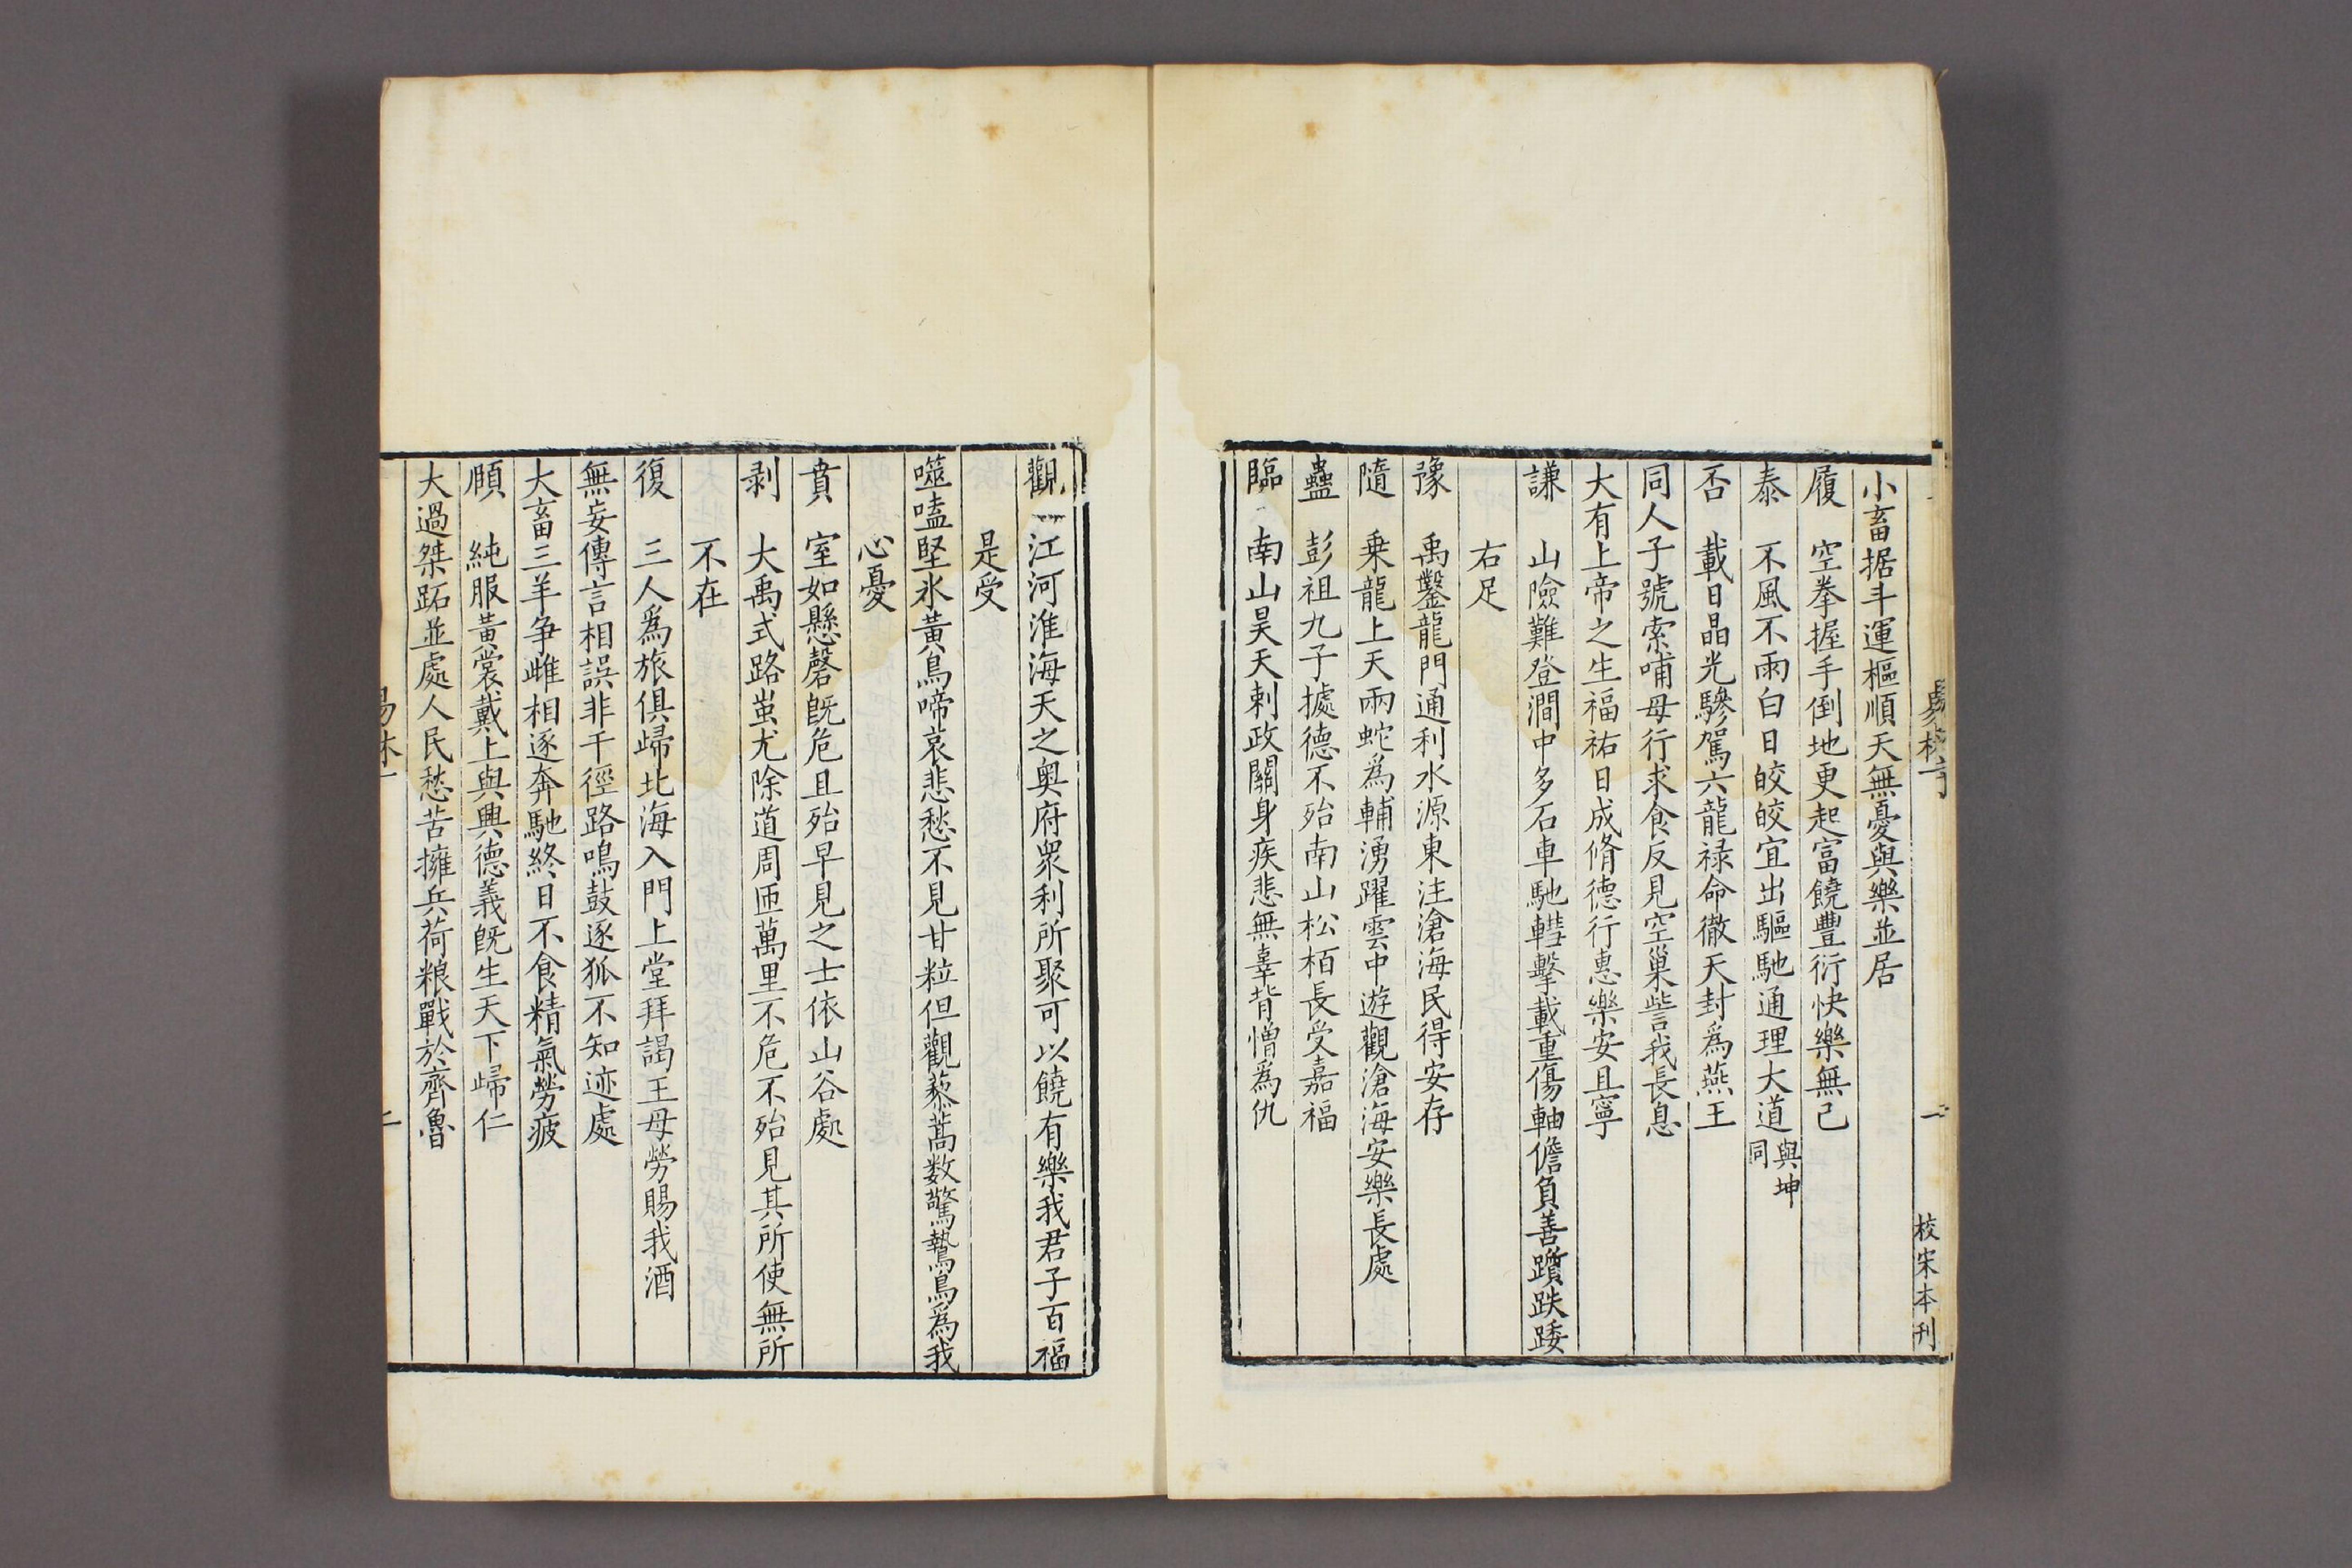 小畜据斗運樞順天無憂與樂並居
履 空拳握手倒地更起富饒豐衍快樂無已
泰 不風不雨白日皎皎宜出驅馳通理大道與坤同
否 載日晶光驂駕六龍禄命徹天封爲燕王
同人子號索哺母行求食反見空巢訾我長息
大有上帝之生福祐日成脩德行惠樂安且寧
謙 山險難登澗中多石車馳轊擊載重傷軸儋負善躓跌踒
右足
豫 禹鑿龍門通利水源東注滄海民得安存
隨 乗龍上天兩蛇爲輔湧躍雲中遊觀滄海安樂長處
蠱 彭祖九子據德不殆南山松栢長受嘉福
臨 南山昊天刺政關身疾悲無辜背憎爲仇
校宋本刊
觀 江河淮海天之奥府衆利所聚可以饒有樂我君子百福
是受
噬嗑堅氷黃鳥啼哀悲愁不見甘粒但觀藜蒿数驚鷙鳥爲我
心憂
賁 室如懸磬旣危且殆早見之士依山谷處
剥 大禹式路蚩尤除道周匝萬里不危不殆見其所使無所
不在
復 三人爲旅俱歸北海入門上堂拜謁王母勞賜我酒
無妄傳言相誤非干徑路鳴鼓逐狐不知迹處
大畜三羊争雌相逐奔馳終日不食精氣勞疲
頤 純服黃裳戴上與興德義旣生天下歸仁
大過桀跖並處人民愁苦擁兵荷粮戰於齊魯